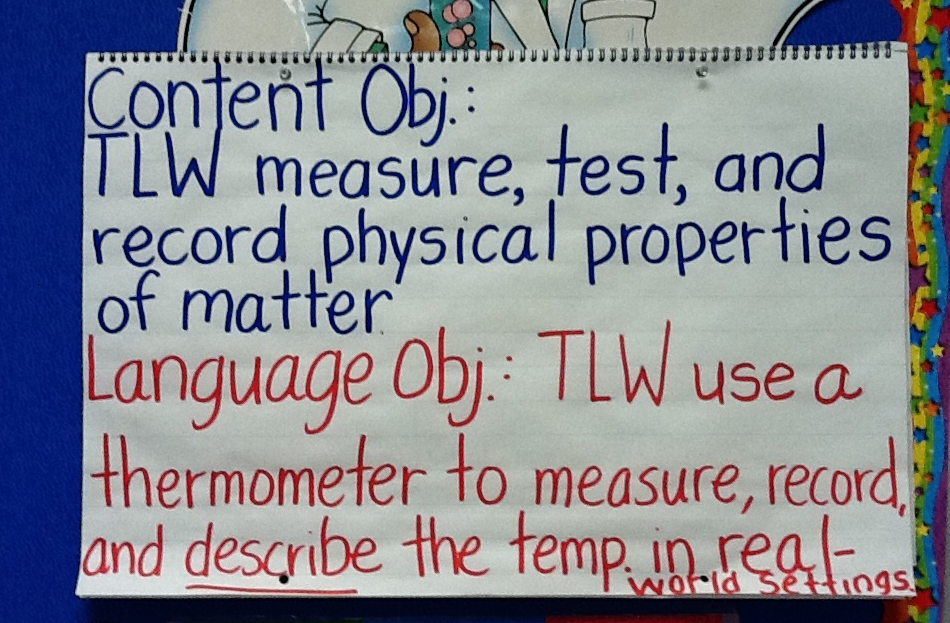 Content Obj.:
TLW measure, test, and
record physical properties
of matter
Language Obj.: TLW use a
thermometer to measure, record,
and describe the temp. in real-
world settings.